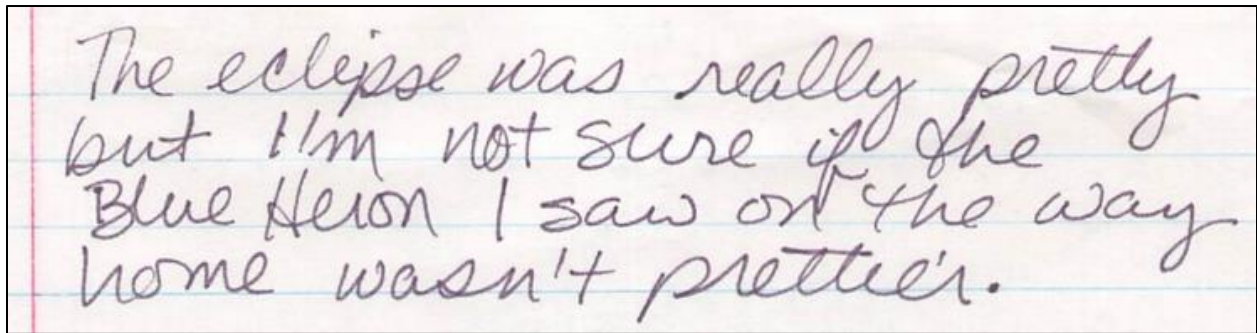 The eclipse was really pretty
but I'm not sure if the
Blue Heron I saw on the way
home wasn't prettier.